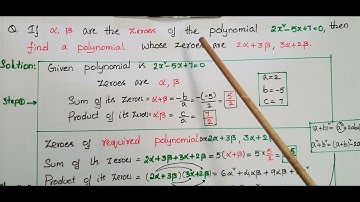 Q. If α, β are the zeroes of the polynomial 2x²-5x+7=0, then
find a polynomial whose zeroes are 2α+3β, 3α+2β.
Solution: Given polynomial is 2x²-5x+7=0
Zeroes are α, β
Step①
Sum of its zeroes = α+β = -b/a = -(-5)/2 = 5/2
Product of its zeroes = αβ = c/a = 7/2
a = 2
b = -5
c = 7
Zeroes of required polynomial are 2α+3β, 3α+2β
Sum of its zeroes = 2α+3β+3α+2β = 5(α+β) = 5×5/2 =
Product of its zeroes = (2α+3β)(3α+2β) = 6α²+4αβ+9αβ+
(a+b)² =
a²+b² = (a+b)²-